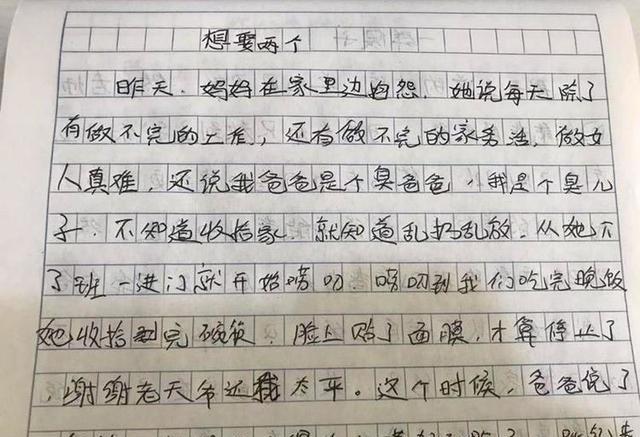 想娶两个
昨天.妈妈在家里边抱怨.她说每天除了
有做不完的工作,还有做不完的家务活,做女
人真难,还说我爸爸是个臭爸爸,我是个臭儿
子.不知道收拾家.就知道乱扔乱放.从她下
了班一进门就开始唠叨.唠叨到我们吃完晚饭
她收拾完碗筷.脸上贴了面膜,才算停止了
,谢谢老天爷还我太平。这个时候,爸爸说了